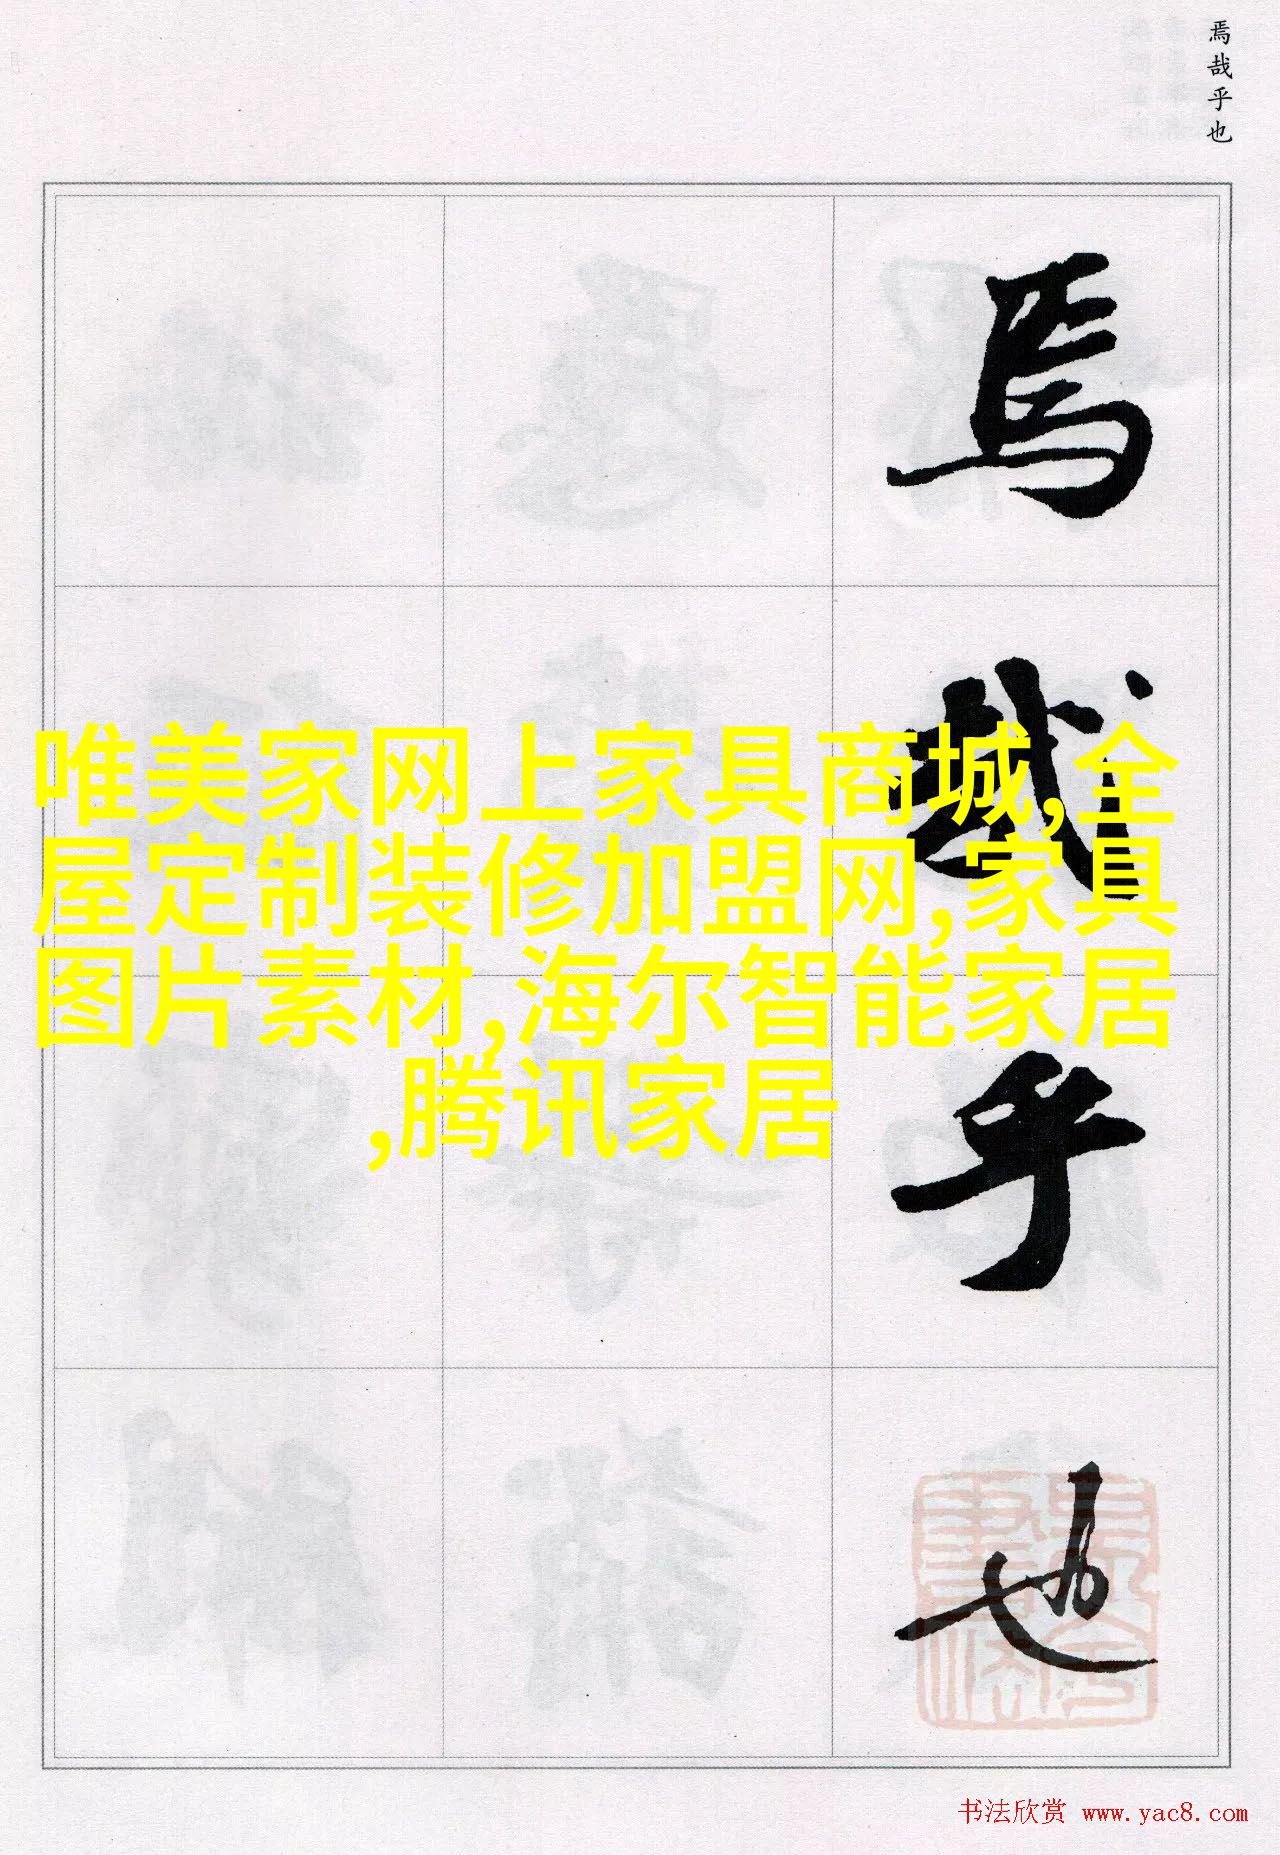 焉哉乎也
焉
哉
乎
也
唯美家网上家具商城,全
屋定制装修加盟网,家具
图片素材,海尔智能家居
,腾讯家居
书法欣赏 www.yac8.com